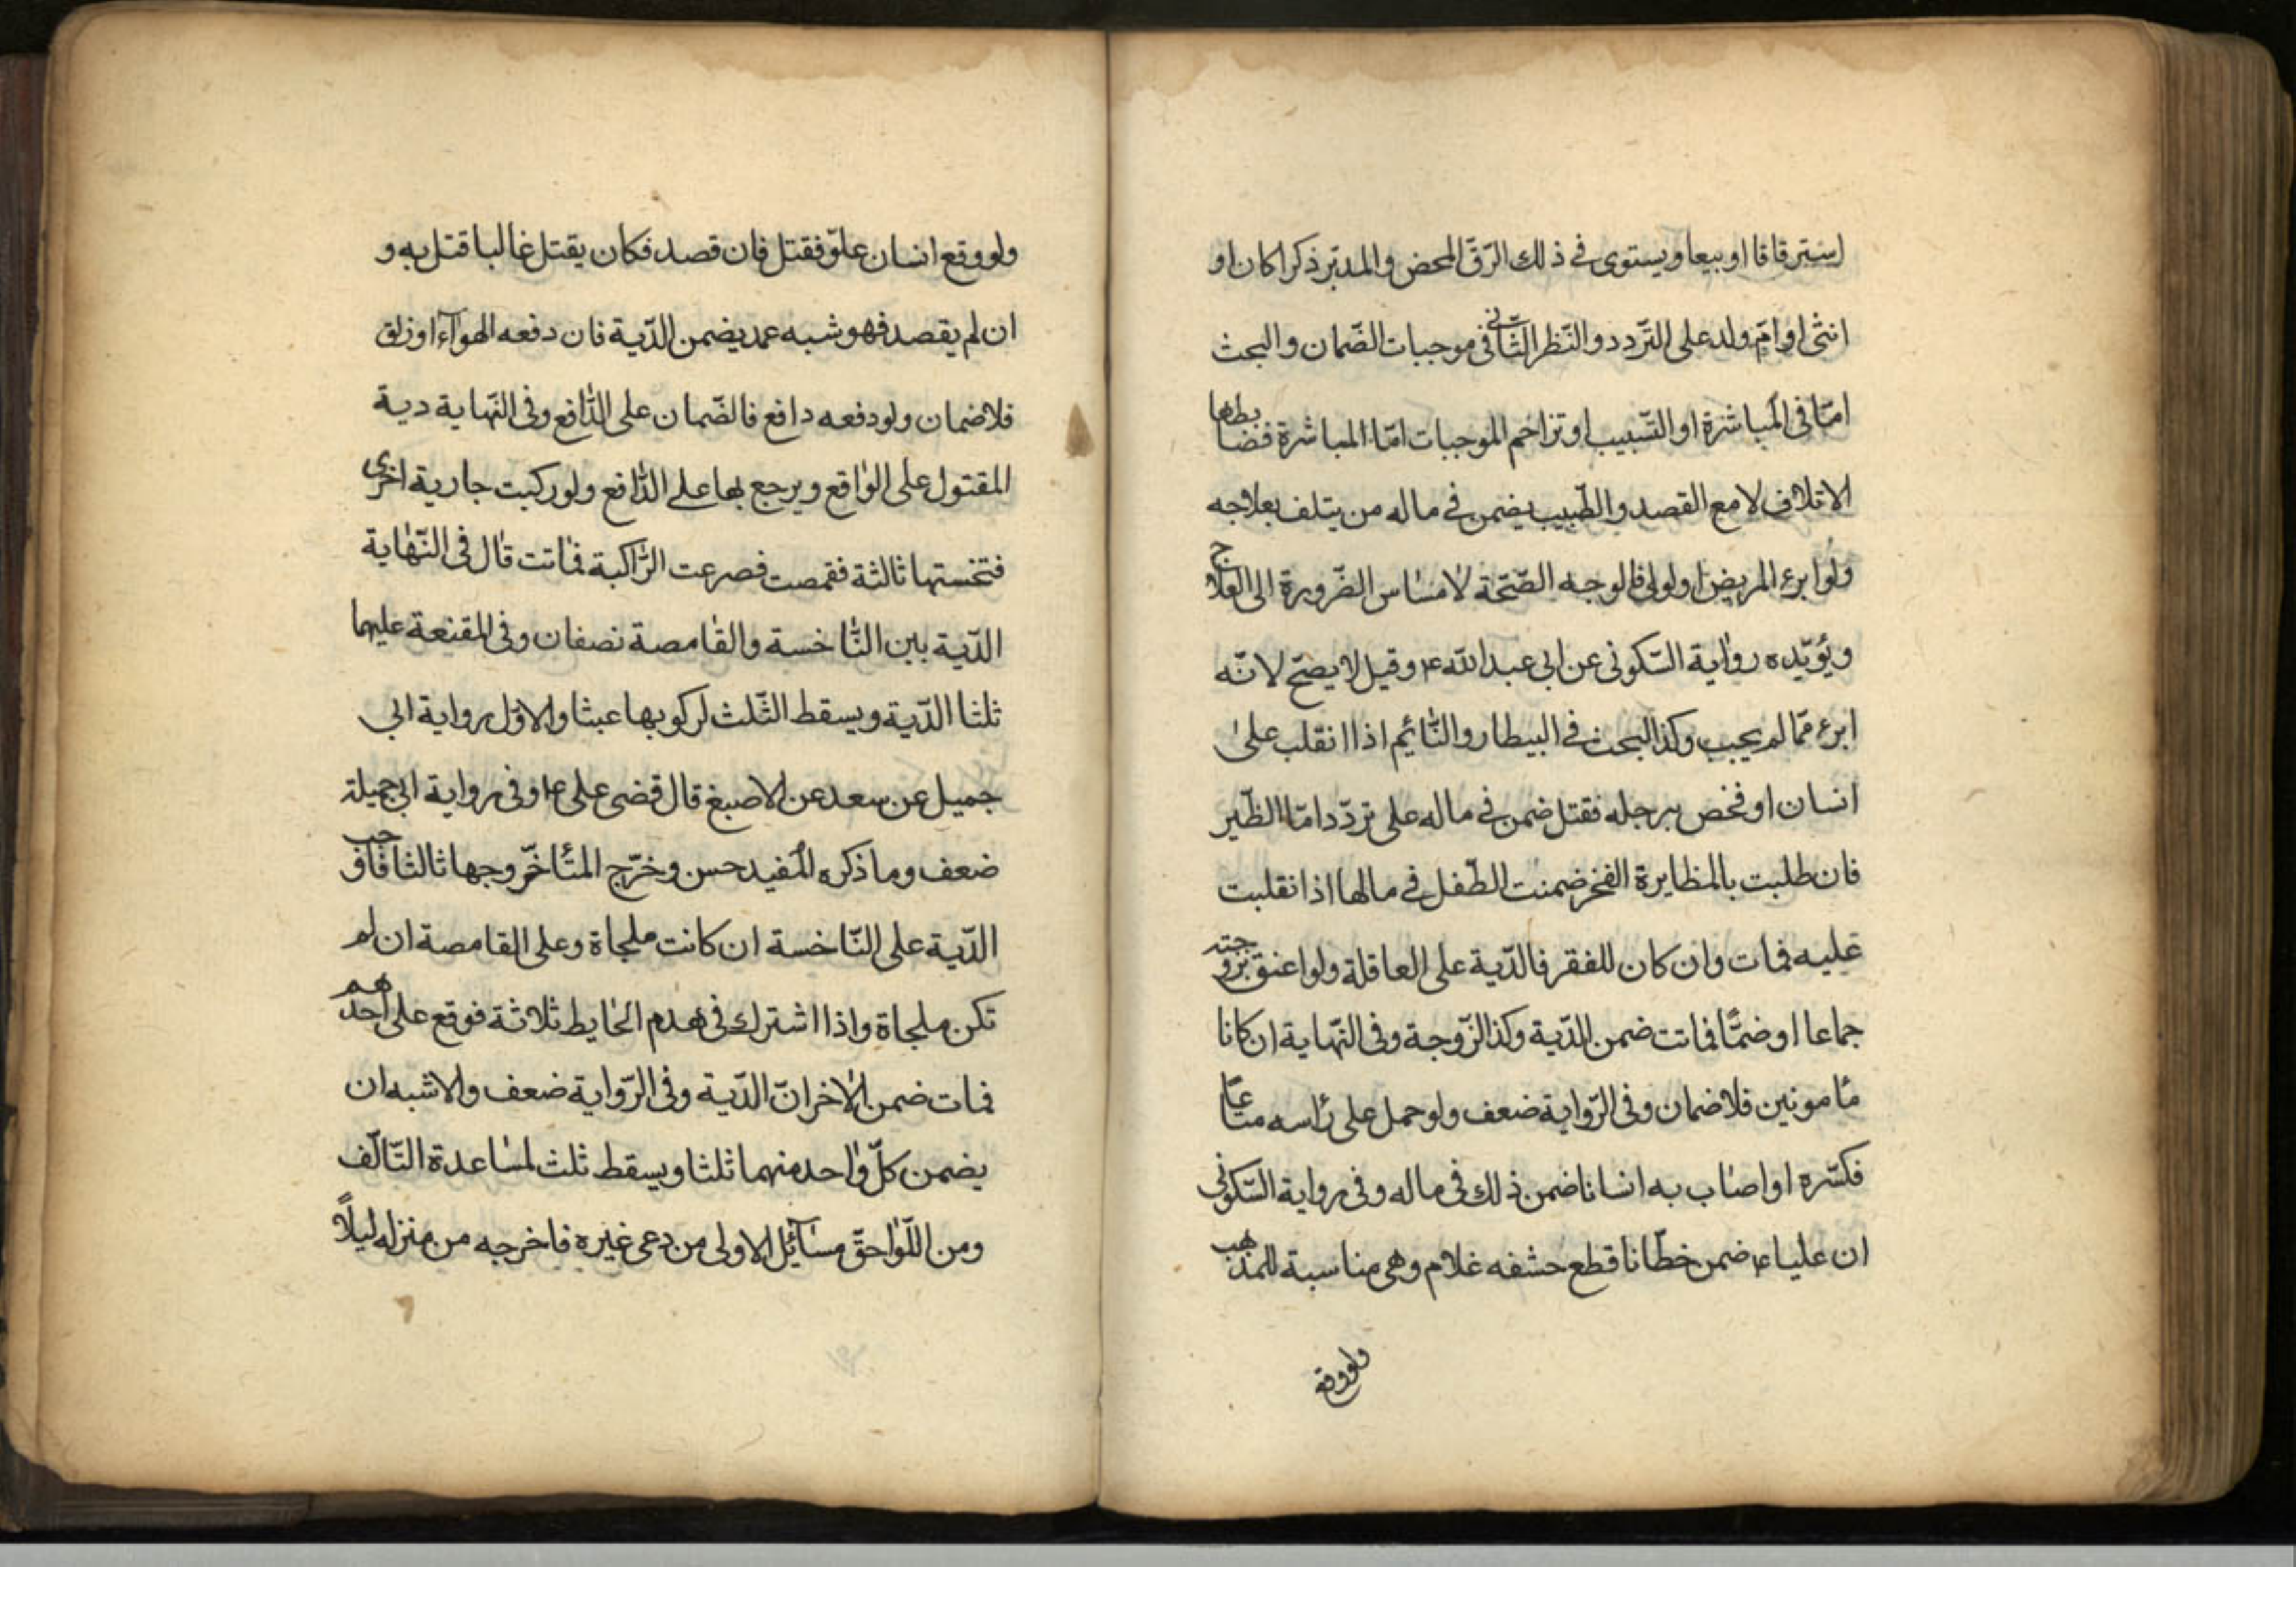 استرقاقا او بيعا ويستوى فى ذلك الرّقّ المحض والمدبّر ذكرا كان او
انثى او امّ ولد على التّردد والنّظر الثّانى فى موجبات الضّمان والبحث
امّا فى المباشرة او التّسبيب او تزاحم الموجبات امّا المباشرة فضابطها
الاتلاف لا مع القصد والطّبيب يضمن فى ماله من يتلف بعلاجه
ولو ابرء المريض او لولى فالوجه الصّحّة لامساس الضّرورة الى العلاج
ويؤيّده رواية السّكونى عن ابى عبد الله ع وقيل لا يصحّ لانّه
ابرء ممّا لم يجب وكذا البحث فى البيطار والنّائم اذا انقلب على
انسان او فخص برجله فقتل ضمن فى ماله على تردّد امّا الظّير
فان طلبت بالمظايرة الفخر ضمنت الطّفل فى مالها اذا انقلبت
عليه فمات وان كان للفقر فالدّية على العاقلة ولو اعنق بزوجته
جماعا او ضمّا فماتت ضمن الدّية وكذا الزّوجة وفى النّهاية ان كانا
مأمونين فلا ضمان وفى الرّواية ضعف ولو حمل على رأسه متاعا
فكسّره او اصاب به انسانا ضمن ذلك فى ماله وفى رواية السّكونى
ان عليا ع ضمن خطّانا قطع حشفه غلام وهى مناسبة للمذهب
ولو وقع
ولو وقع انسان علوّ فقتل فان قصد فكان يقتل غالبا قتل به و
ان لم يقصد فهو شبه عمد يضمن الدّية فان دفعه الهوآء او زلق
فلا ضمان ولو دفعه دافع فالضّمان على الدّافع وفى النّهاية دية
المقتول على الواقع ويرجع بها على الدّافع ولو ركبت جارية اخرى
فنخستها ثالثة فقمصت فصرعت الرّاكبة فماتت قال فى النّهاية
الدّية بين النّاخسة والقامصة نصفان وفى المقنعة عليهما
ثلثا الدّية ويسقط الثّلث لركوبها عبثا والاوّل رواية ابى
جميل عن سعد عن الاصبغ قال قضى على ع وفى رواية ابى جميلة
ضعف وما ذكره المفيد حسن وخرّج المتأخّر وجها ثالثا فاوجب
الدّية على النّاخسة ان كانت ملجاة وعلى القامصة ان لم
تكن ملجاة واذا اشترك فى هدم الحايط ثلاثة فوقع على احدهم
فمات ضمن الاخرانّ الدّية وفى الرّواية ضعف والاشبه ان
يضمن كلّ واحد منهما ثلثا ويسقط ثلث لمساعدة التّالف
ومن اللّواحقّ مسائل الاولى من دعى غيره فاخرجه من منزله ليلاً